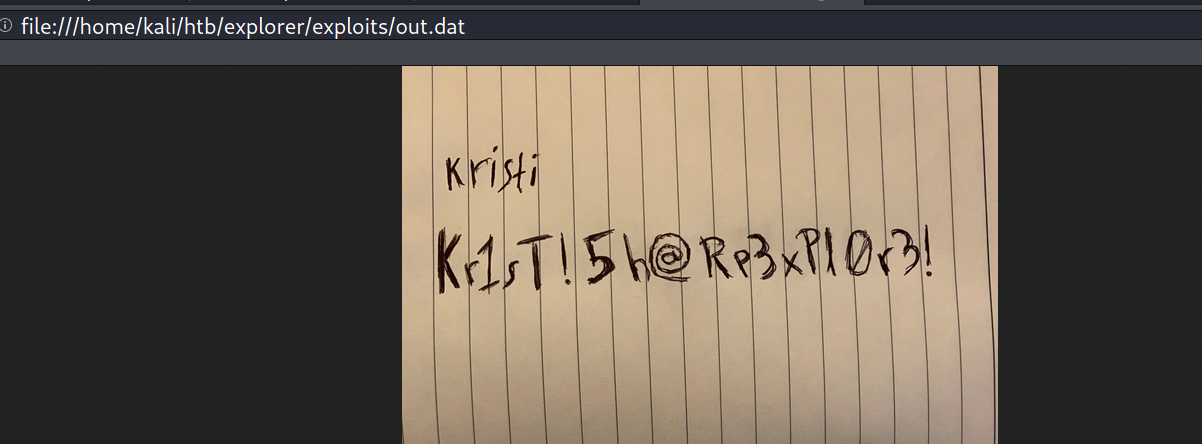 file:///home/kali/htb/explorer/exploits/out.dat
Kristi
Kr1sT!5h@Rp3xPl0r3!